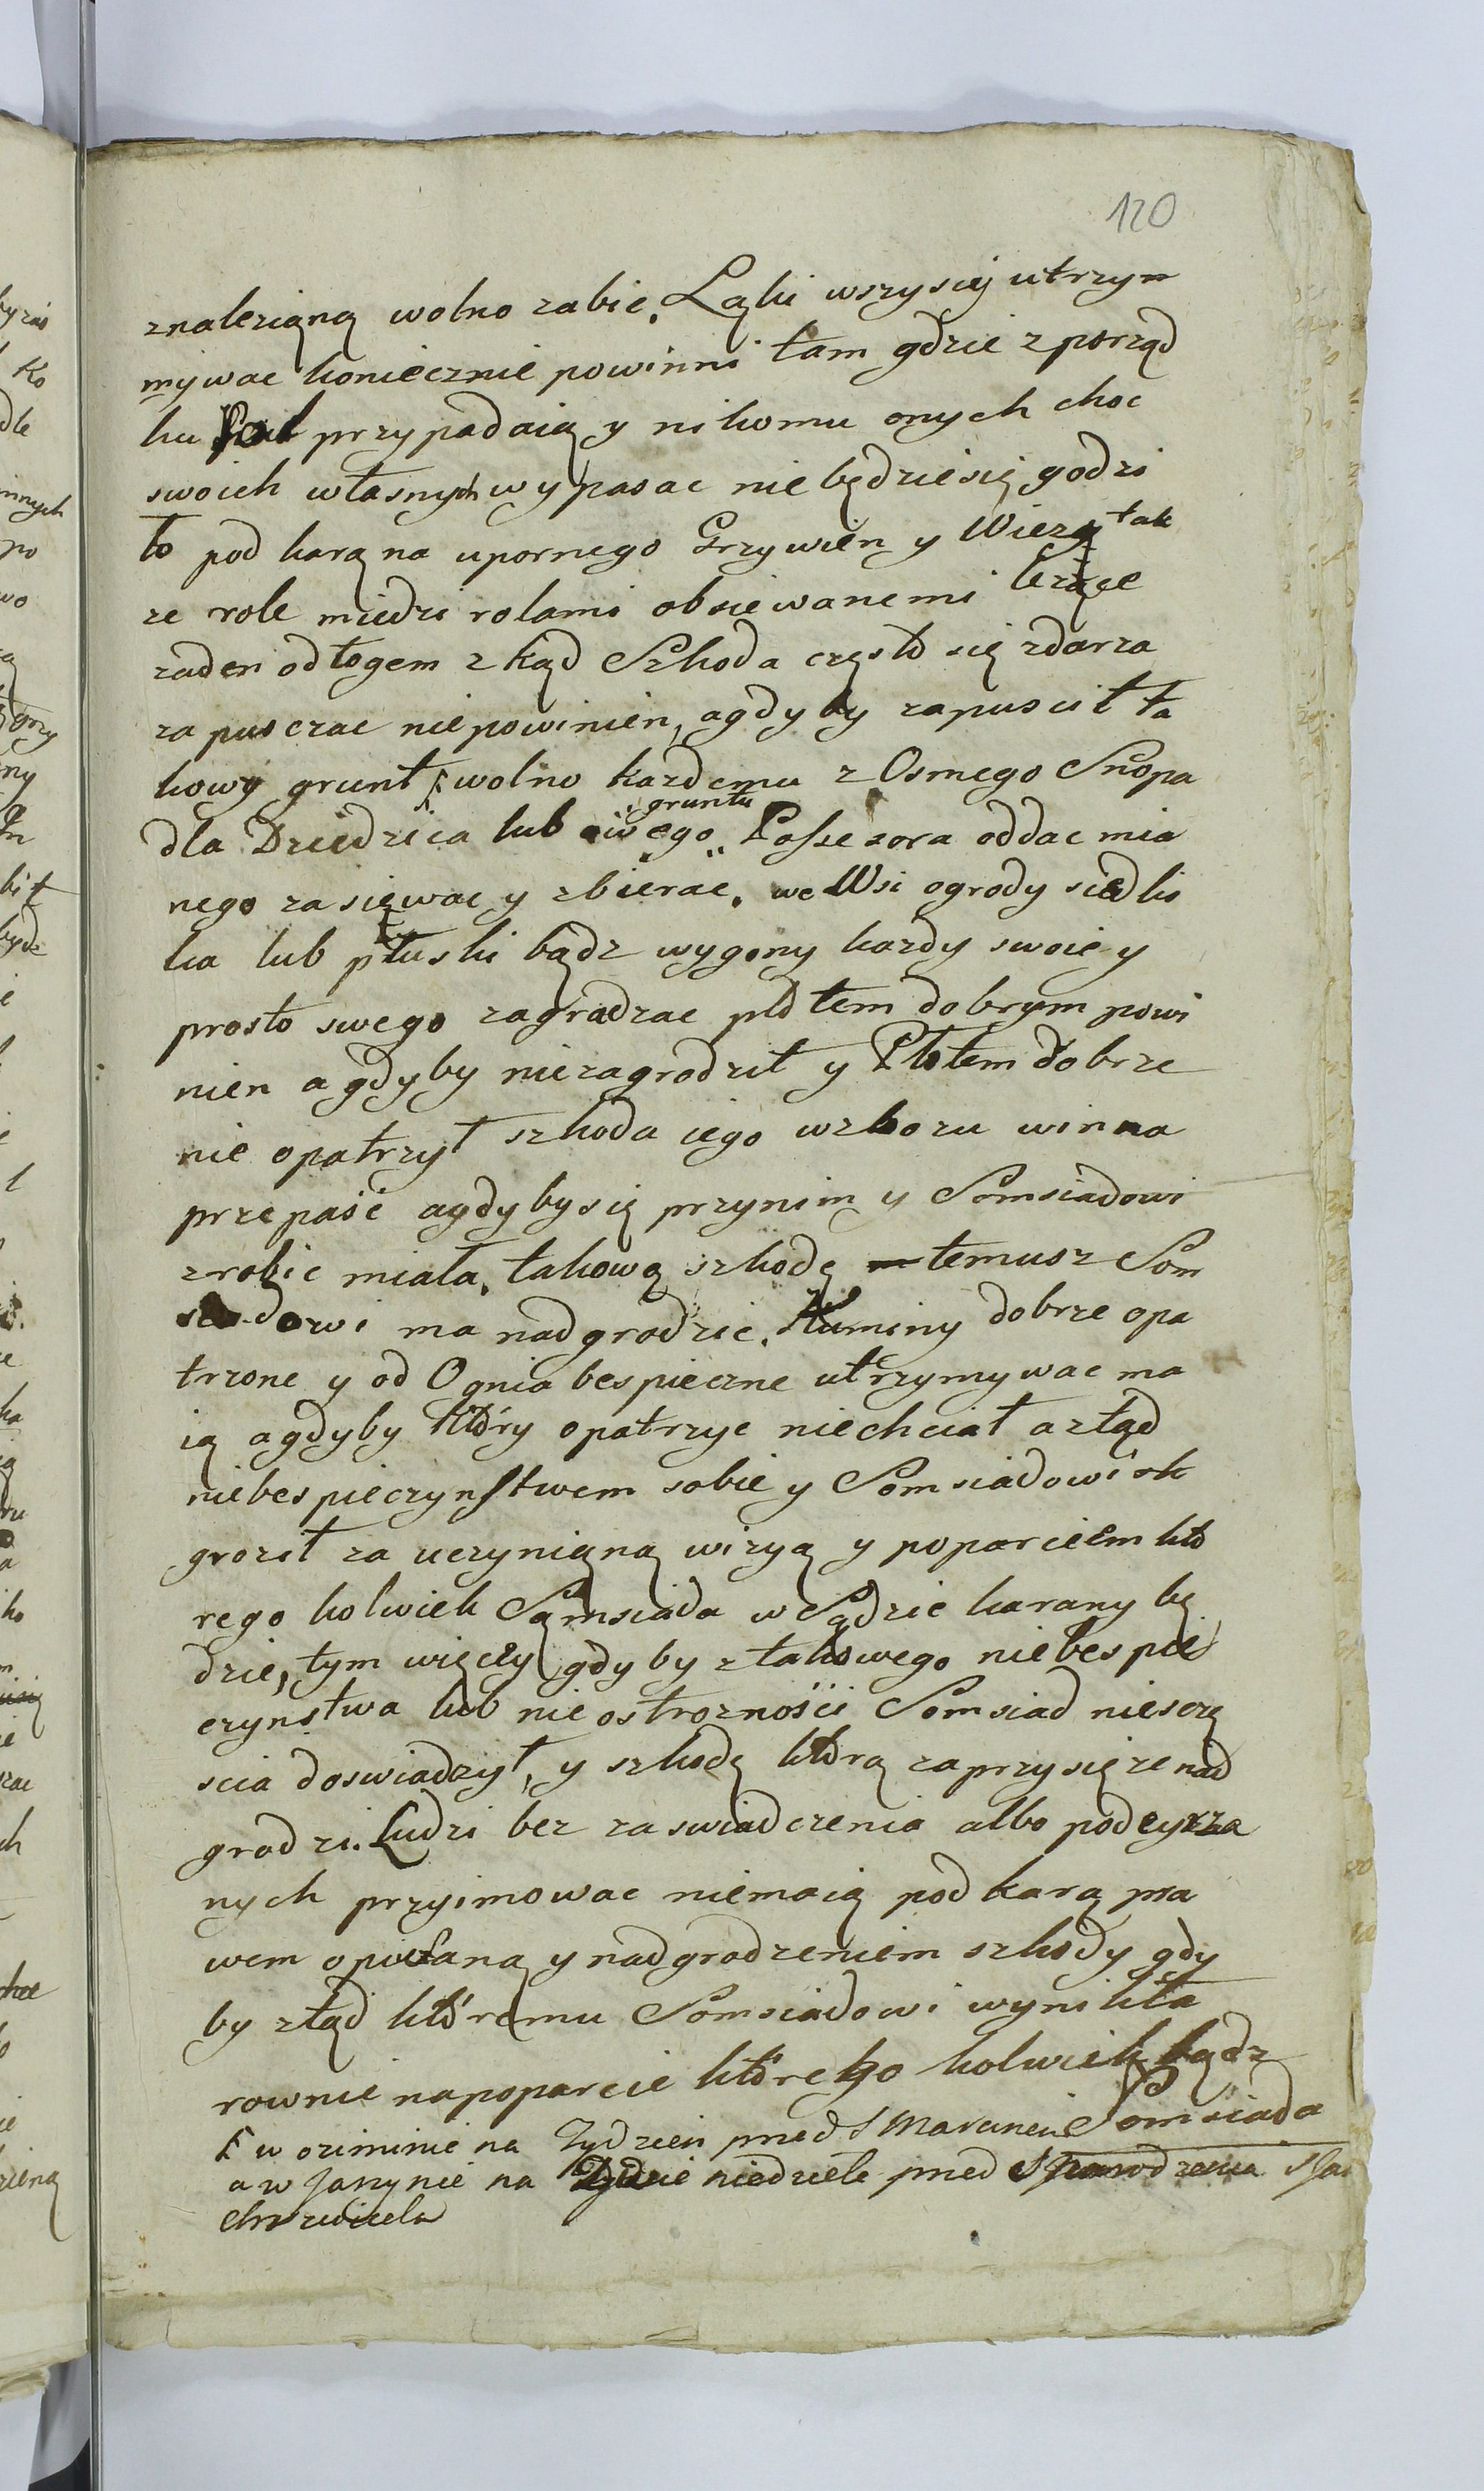 120
znaleziąną wolno zabic. Ląki wszysciy utrzy
mywac koniecznie powinni tam gdzie z porząd
ku Pol przypadaią y nikomu onych choc
swoich własnych wypasac nie będzie się godzi
ło pod karą na upornego Grzywien y Wiezą tak
ze role miedzi rolami obsiewanemi lezące
zaden odłogem z kąd Szkoda często się zdarza
zapusczac niepowinien, agdyby zapuscił ta
kowy grunt wolno kazdemu z Osmego Snopa
gruntu
dla Dziedzica lub owego Possesora oddac mia
nego zasięwac y zbierac. we Wsi ogrody siedlis
ka lub płuski bądz wygony kazdy swoie y
prosto swego zagradzac płotem dobrym powi
nien agdyby niezagrodził y Płotem dobrze
nie opatrzył szkoda iego w zbozu winna
przepaść agdyby się przynim y Somsiadowi
zrobic miała, takową szkodę temusz Som
siadowi ma nadgrodzic. Kuminy dobrze opa
trzone y od Ognia bespieczne utrzymywac ma
ią agdyby który opatrzyc niechciał a ztąd
niebespieczynstwem sobie y Somsiadowi
groził za uczynięną wizyą y poparciem któ
rego kolwiek Sąmsiada w Sądzie karany bę
dzie, tym więcey gdyby z takowego niebespie
czynstwa lub nie ostrozności Somsiad niesczę
scia doswiadzył, y szkodę którą zaprzysięze nad
grodzi. Ludzi bez zaswiadczenia albo podeyrza
nych przyimowac niemaią pod karą pra
wem opisaną y nadgrodzeniem szkody gdy
by ztąd któremu Somsiadowi wynikła
rownie napoparcie którego kolwiek bądz
Somsiada
w oziminie na Tydzien przed S Marcinem
a w Jarzynie na niedziele przed S